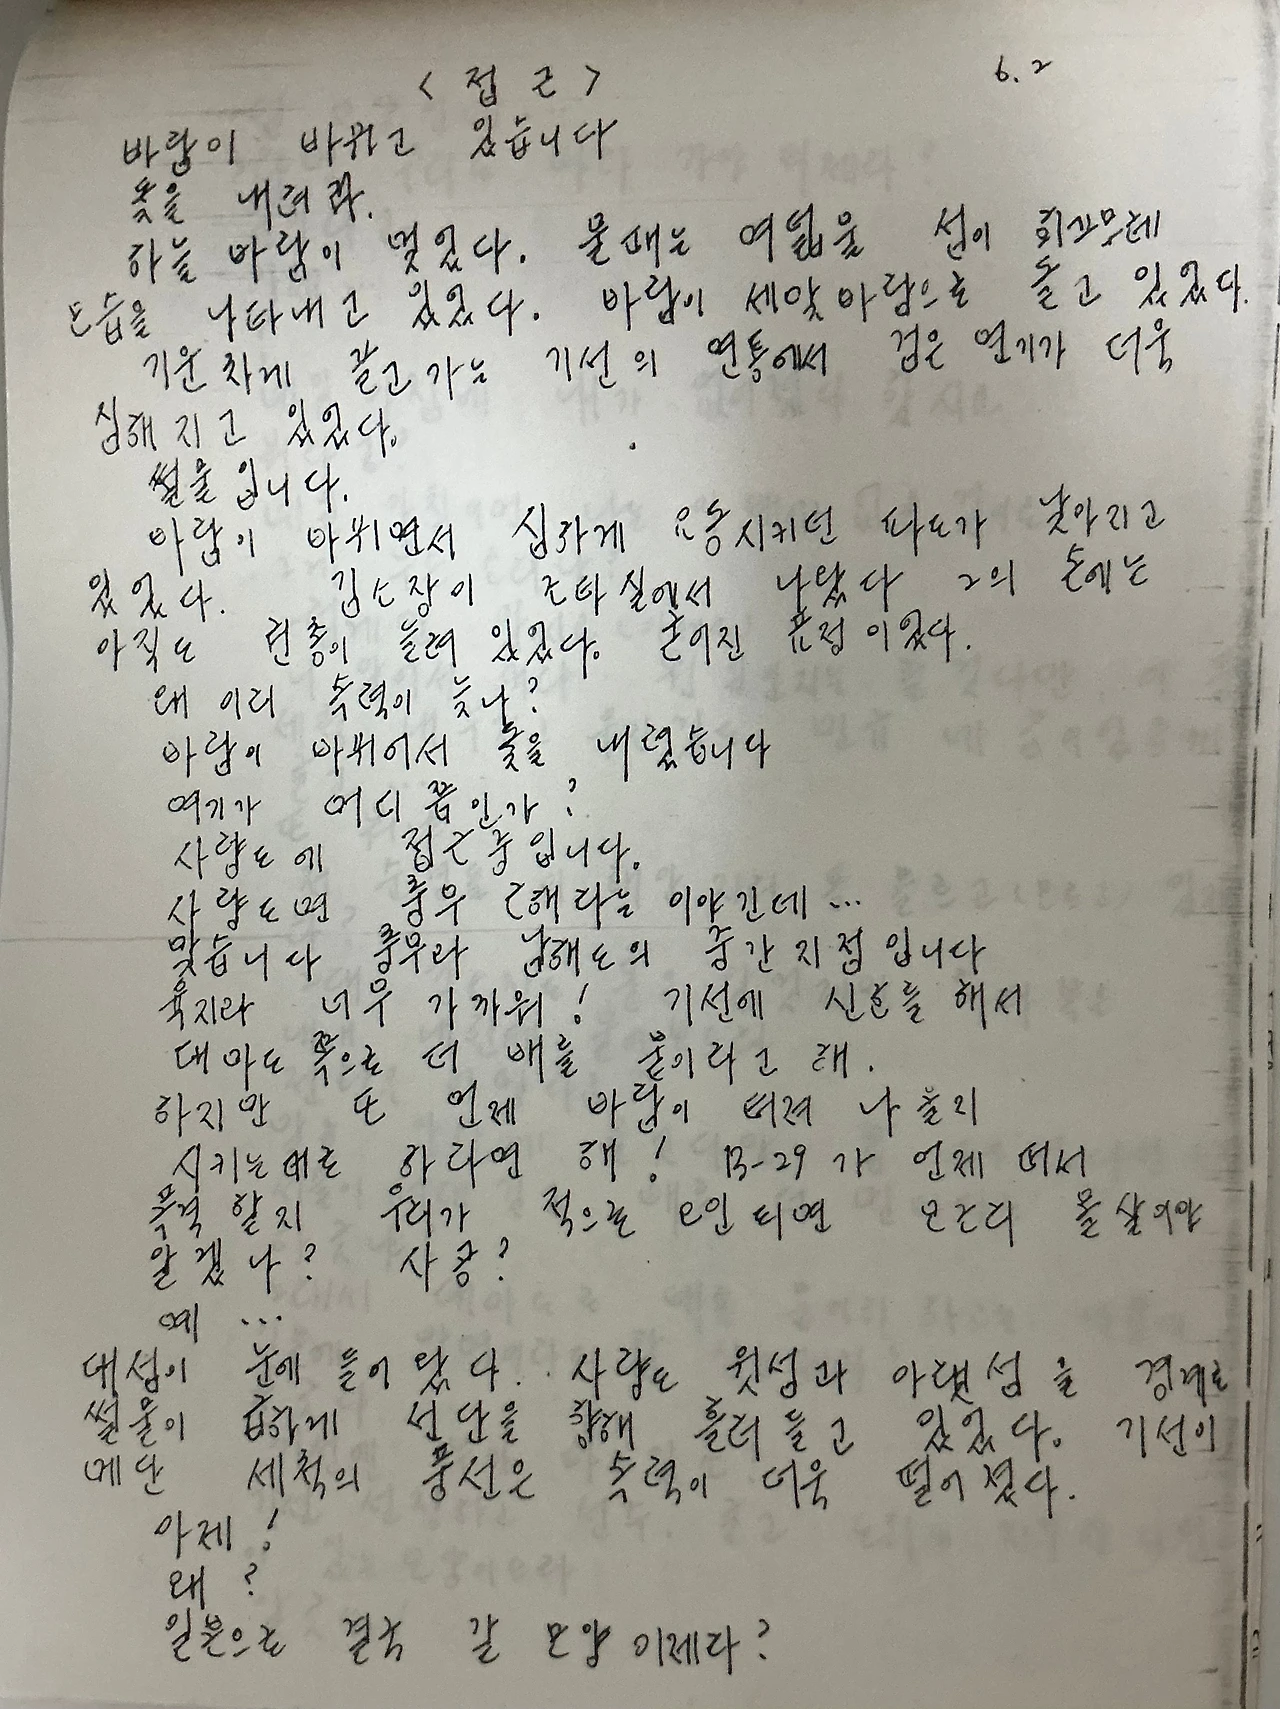 < 접 근 >
6.2
바람이 바뀌고 있습니다
돛을 내려라.
하늘 바람이 멎었다. 물때는 여덟물 섬이 희끄무레
모습을 나타내고 있었다. 바람이 세맞바람으로 돌고 있었다.
기운차게 끌고가는 기선의 연통에서 검은 연기가 더욱
심해지고 있었다.
썰물입니다.
바람이 바뀌면서 심하게 요동시키던 파도가 낮아지고
있었다. 김소장이 조타실에서 나왔다 그의 손에는
아직도 권총이 들려 있었다. 굳어진 표정이었다.
왜 이리 속력이 늦나?
바람이 바뀌어서 돛을 내렸습니다
여기가 어디쯤인가?
사량도에 접근중입니다.
사량도면 충무 근해라는 이야긴데...
맞습니다 충무과 남해도의 중간지점입니다
육지라 너무 가까워! 기선에 신호를 해서
대마도쪽으로 더 배를 붙이라고 해.
하지만 또 언제 바람이 터져 나올지
시키는대로 하라면 해! B-29가 언제 떠서
폭격할지 우리가 적으로 오인되면 모조리 몰살이야
알겠나? 사공?
예 ...
대섬이 눈에 들어왔다. 사량도 윗섬과 아랫섬을 경계로
썰물이 급하게 선단을 향해 흘러들고 있었다. 기선이
메단 세척의 풍선은 속력이 더욱 떨어졌다.
아제!
왜?
일본으로 결국 갈 모양이제라?